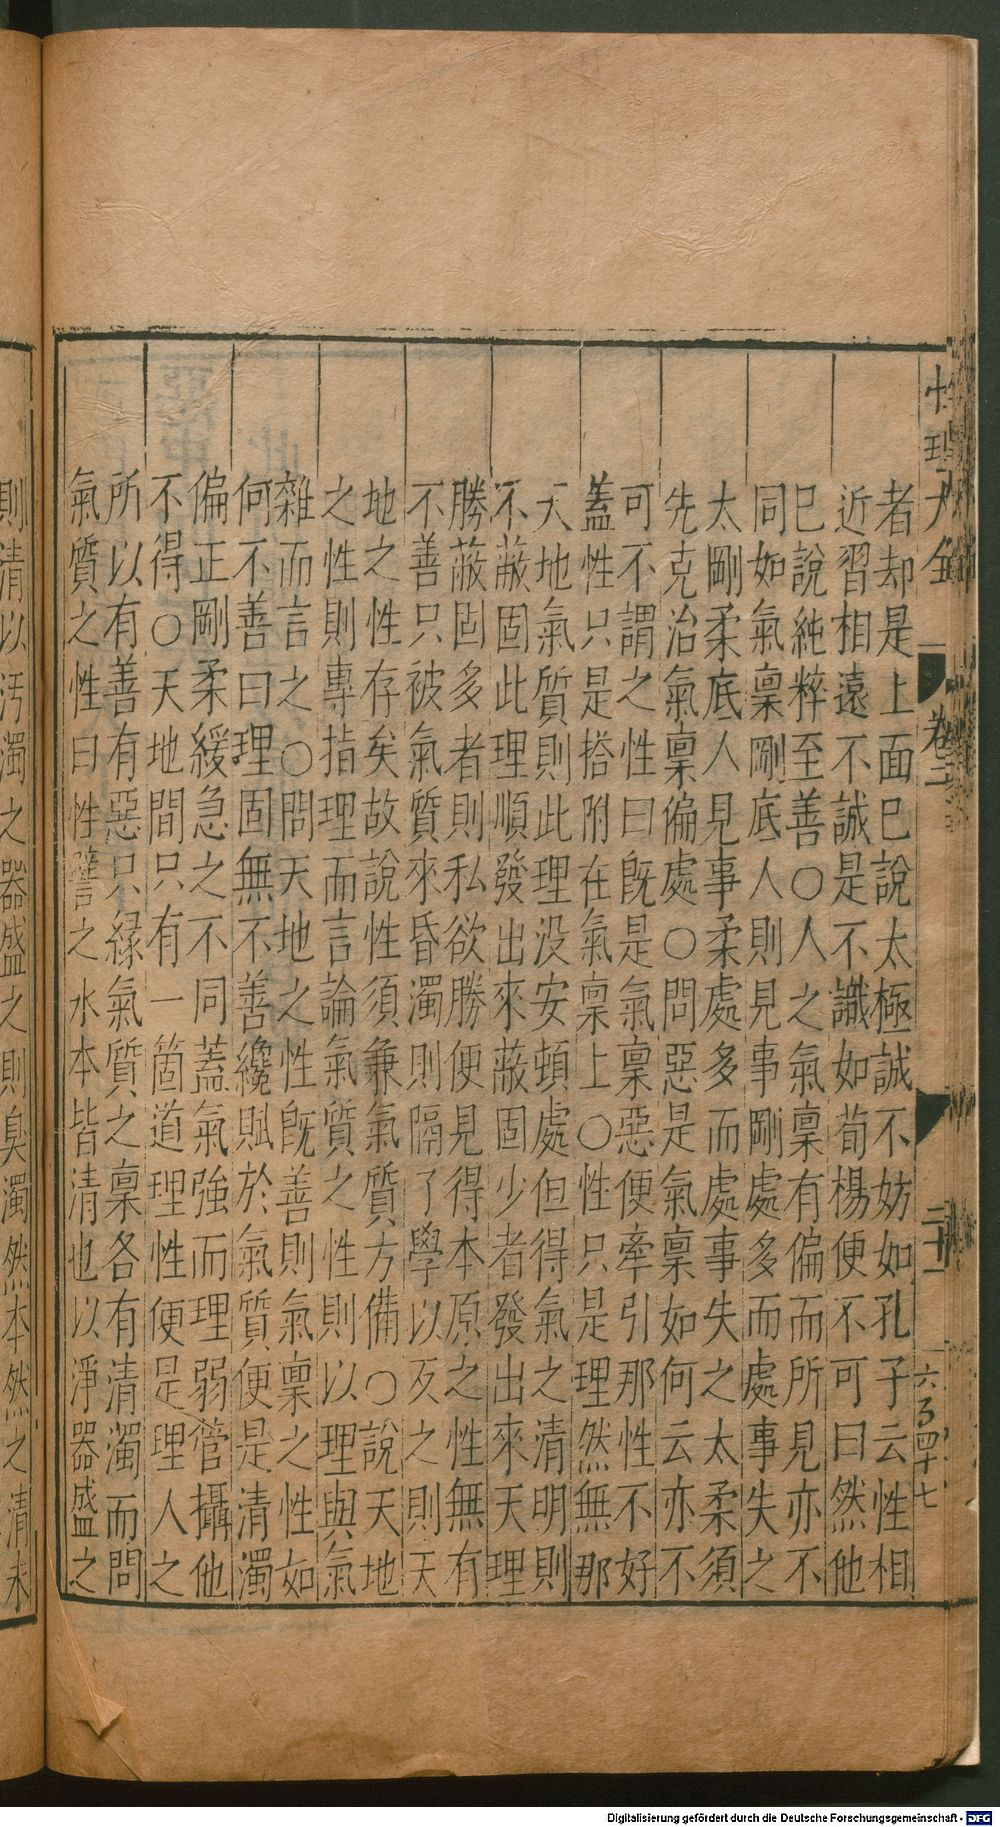 性理大全 卷三 二十一 六百四十七
者却是上面已說太極誠不妨如孔子云性相
近習相遠不誠是不識如荀楊便不可曰然他
已說純粹至善○人之氣稟有偏而所見亦不
同如氣稟剛底人則見事剛處多而處事失之
太剛柔底人見事柔處多而處事失之太柔須
先克治氣稟偏處○問惡是氣稟如何云亦不
可不謂之性曰旣是氣稟惡便牽引那性不好
蓋性只是搭附在氣稟上○性只是理然無那
天地氣質則此理没安頓處但得氣之清明則
不蔽固此理順發出來蔽固少者發出來天理
勝蔽固多者則私欲勝便見得本原之性無有
不善只被氣質來昏濁則隔了學以反之則天
地之性存矣故說性須兼氣質方備○說天地
之性則專指理而言論氣質之性則以理與氣
雜而言之○問天地之性旣善則氣稟之性如
何不善曰理固無不善纔賦於氣質便是清濁
偏正剛柔緩急之不同蓋氣強而理弱管攝他
不得○天地間只有一箇道理性便是理人之
所以有善有惡只緣氣質之稟各有清濁而問
氣質之性曰性譬之水本皆清也以淨器盛之
則清以汚濁之器盛之則臭濁然本然之清未
Digitalisierung gefördert durch die Deutsche Forschungsgemeinschaft - DFG